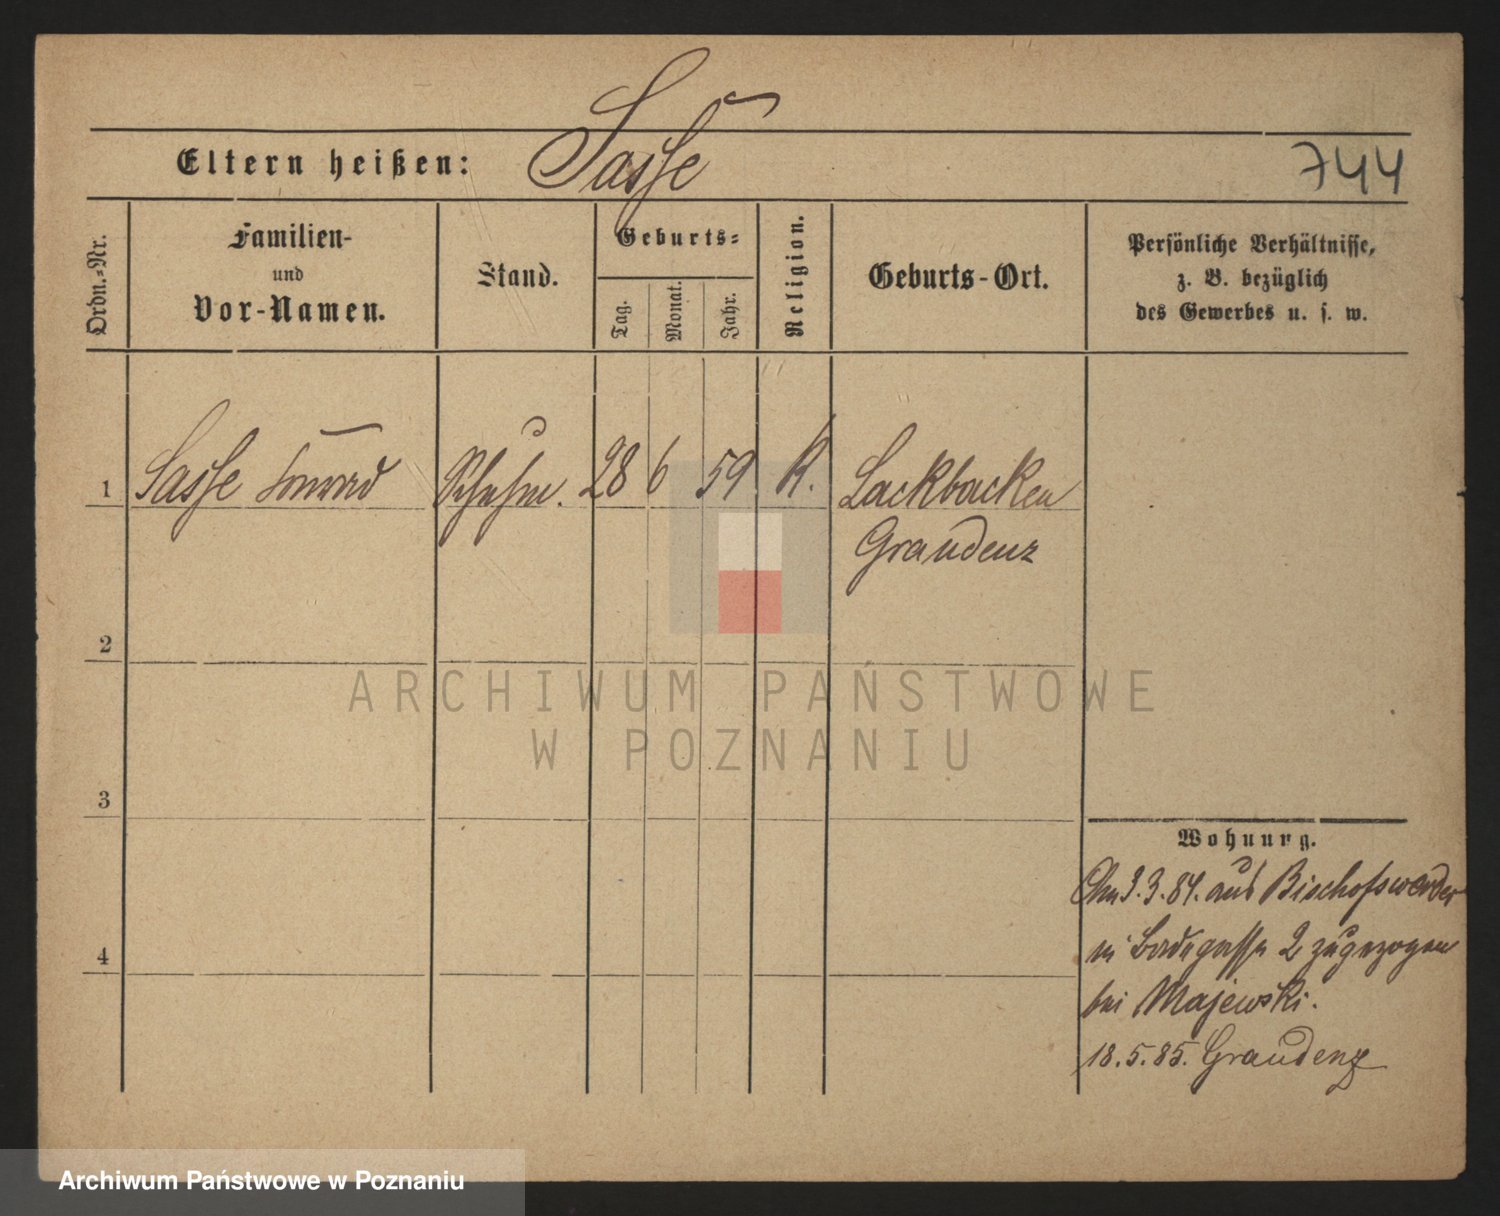 Sasse
Eltern heißen:
744
Ordn.-Nr.
Familien-
und
Vor-Namen.
Stand.
Geburts-
Tag.
Monat.
Jahr.
Religion.
Geburts-Ort.
Persönliche Verhältnisse,
z. B. bezüglich
des Gewerbes u. s. w.
1 Sasse Konrad 28 6 59 K. Lackbacken
Graudenz
2
3
4
Wohnung.
3.3.84. aus Bischofswerder
in 2 zugezogen
bei Majewski.
18.5.85. Graudenz
ARCHIWUM PAŃSTWOWE
W POZNANIU
Archiwum Państwowe w Poznaniu